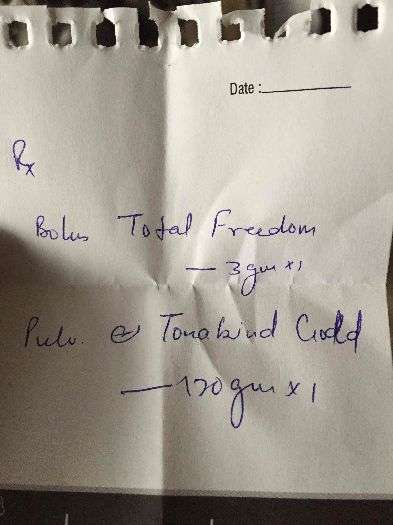 Date :
Rx
Bolus Total Freedom
— 3 gm x 1
Pulv. Tonakind Gold
— 120 gm x 1